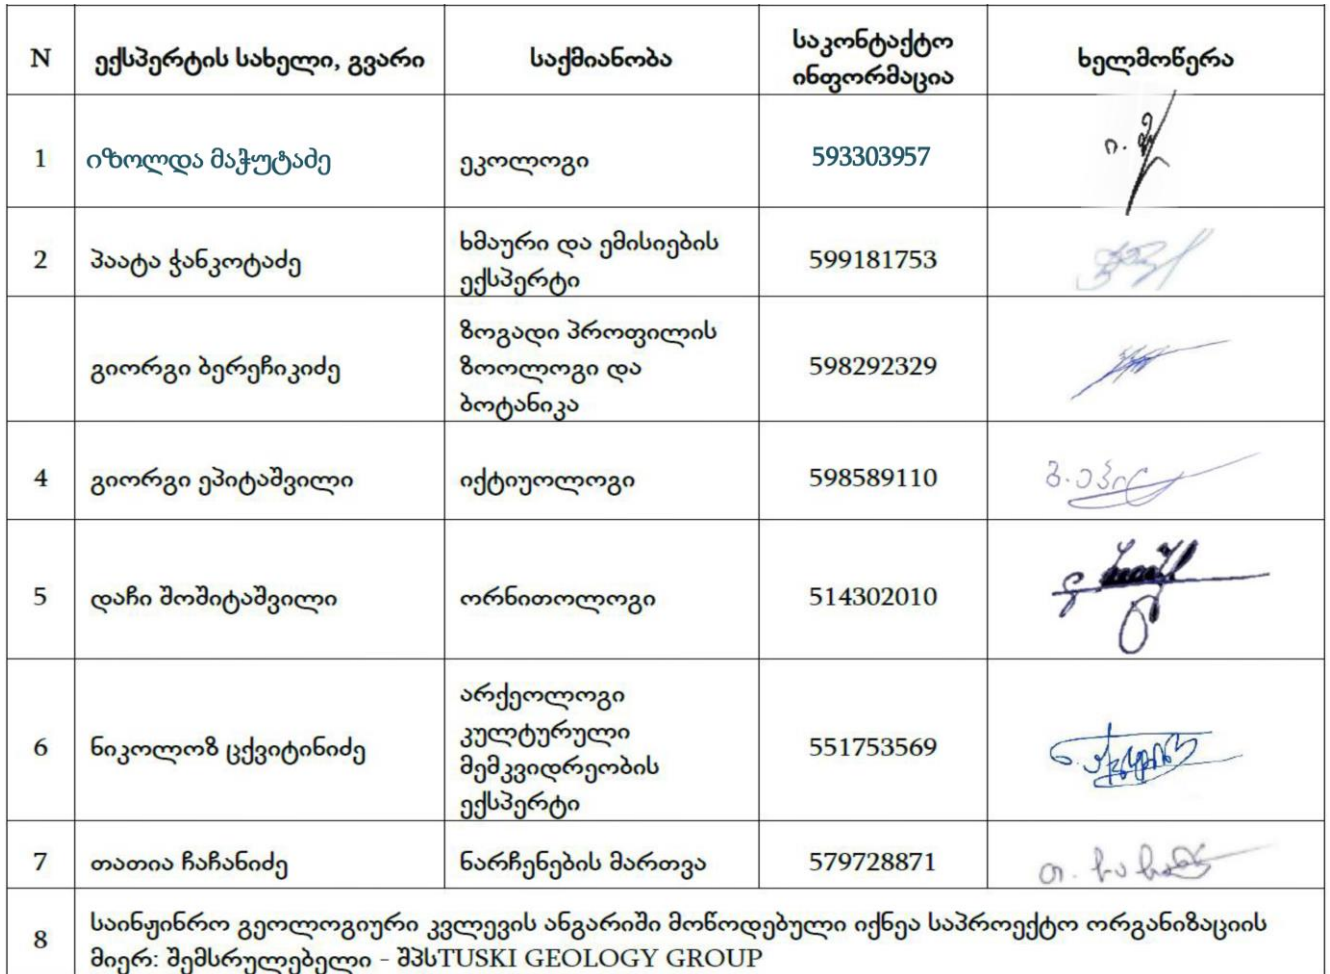 N ექსპერტის სახელი, გვარი საქმიანობა საკონტაქტო ინფორმაცია ხელმოწერა
1 იზოლდა მაჭუტაძე ეკოლოგი 593303957
2 პაატა ჭანკოტაძე ხმაური და ემისიების ექსპერტი 599181753
გიორგი ბერეჩიკიძე ზოგადი პროფილის ზოოლოგი და ბოტანიკა 598292329
4 გიორგი ეპიტაშვილი იქტიუოლოგი 598589110
5 დაჩი შოშიტაშვილი ორნითოლოგი 514302010
6 ნიკოლოზ ცქვიტინიძე არქეოლოგი კულტურული მემკვიდრეობის ექსპერტი 551753569
7 თათია ჩაჩანიძე ნარჩენების მართვა 579728871
8 საინჟინრო გეოლოგიური კვლევის ანგარიში მოწოდებული იქნეა საპროექტო ორგანიზაციის
მიერ: შემსრულებელი - შპსTUSKI GEOLOGY GROUP